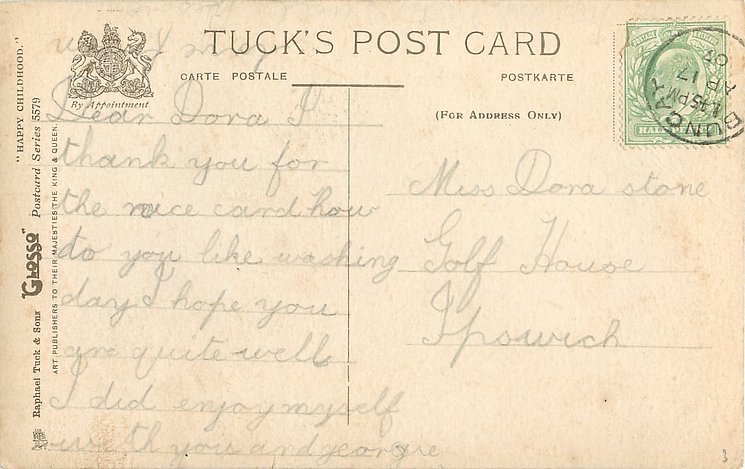 TUCK'S POST CARD
CARTE POSTALE
POSTKARTE
(FOR ADDRESS ONLY)
By Appointment
"HAPPY CHILDHOOD."
Raphael Tuck & Sons "GLOSSO" Postcard Series 5579
ART PUBLISHERS TO THEIR MAJESTIES THE KING & QUEEN.
Dear Dora I
thank you for
the nice card how
to you like washing
day I hope you
are quite well
I did enjoy myself
with you and georgie
Miss Dora stone
Golf House
Ipswich
BUNGAY
1.45 PM
AP 17
07
HALFPENNY
3